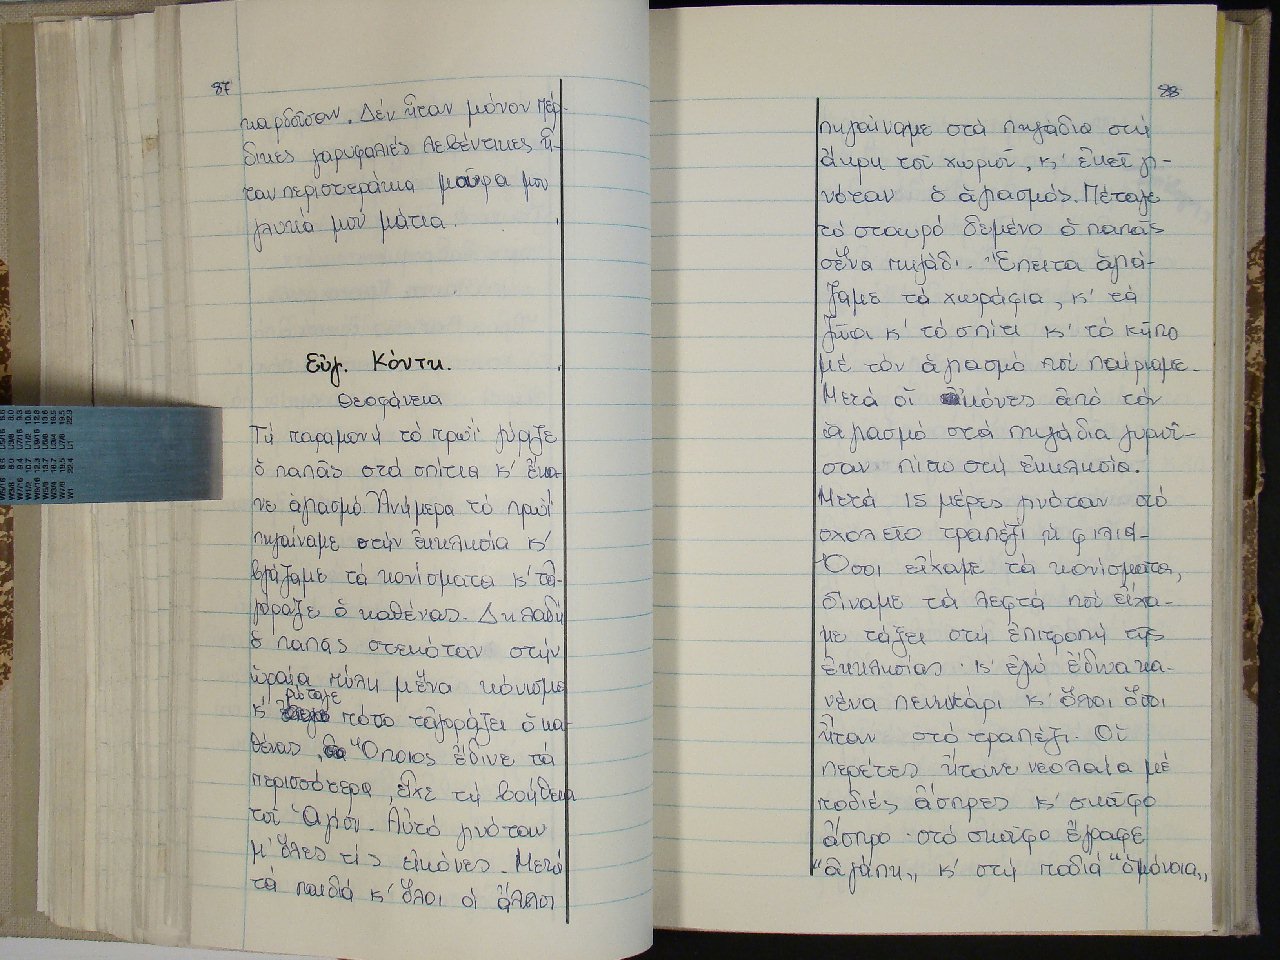 87
καρδοῦσαν. Δέν ἦταν μόνον πέρ-
δικες γαρυφαλιές λεβέντικες ἦ-
ταν περιστεράκια μαῦρα μου
γλυκά μου μάτια.
Εὐγ. Κόντη.
Θεοφάνεια
Τή παραμονή τό πρωΐ γύριζε
ὁ παπᾶς στά σπίτια κ' ἔκα-
νε ἁγιασμό. Ἀνήμερα τό πρωΐ
πηγαίναμε στήν ἐκκλησία κ'
βγάζαμε τά κονίσματα κ' τἀ-
γόραζε ὁ καθένας. Δηλαδή
ὁ παπάς στεκόταν στήν
ὡραία πύλη μἕνα κόνισμα
κ' ρώταγε πόσο τἀγοράζει ὁ κα-
θένας. Ὅποιος ἔδινε τά
περισσότερα, εἶχε τή βοήθεια
τοῦ Ἁγίου. Αὐτό γινόταν
μ' ὅλες τίς εἰκόνες. Μετά
τά παιδιά κ' ὅλοι οἱ ἄλλοι
88
πηγαίναμε στά πηγάδια στή
ἄκρη τοῦ χωριοῦ, κ' ἐκεῖ γι-
νόταν ὁ ἁγιασμός. Πέταγε
τό σταυρό δεμένο ὁ παπᾶς
σἕνα πηγάδι. Ἔπειτα ἁγιά-
ζαμε τά χωράφια, κ' τά
ζῶα κ' τό σπίτι κ' τό κῆπο
μέ τόν ἁγιασμό πού παίρναμε.
Μετά οἱ εἰκόνες ἀπό τόν
ἁγιασμό στά πηγάδια γυρνοῦ-
σαν πίσω στή ἐκκλησία.
Μετά 15 μέρες γινόταν στό
σχολεῖο τραπέζι ἡ φιλιά.
Ὅσοι εἴχαμε τά κονίσματα,
δίναμε τά λεφτά πού εἴχα-
με τάξει στή ἐπιτροπή τῆς
ἐκκλησίας. κ' ἐγώ ἔδινα κα-
νένα πενηνκάρι κ' ὅλοι ὅσοι
ἦταν στό τραπέζι. Οἱ
περέτες ἤτανε νεολαία μέ
ποδιές ἄσπρες κ' σκοῦφο
ἄσπρο. στό σκοῦφο ἔγραφε
"ἀγάπη,, κ' στή ποδιά "ὁμόνοια,,